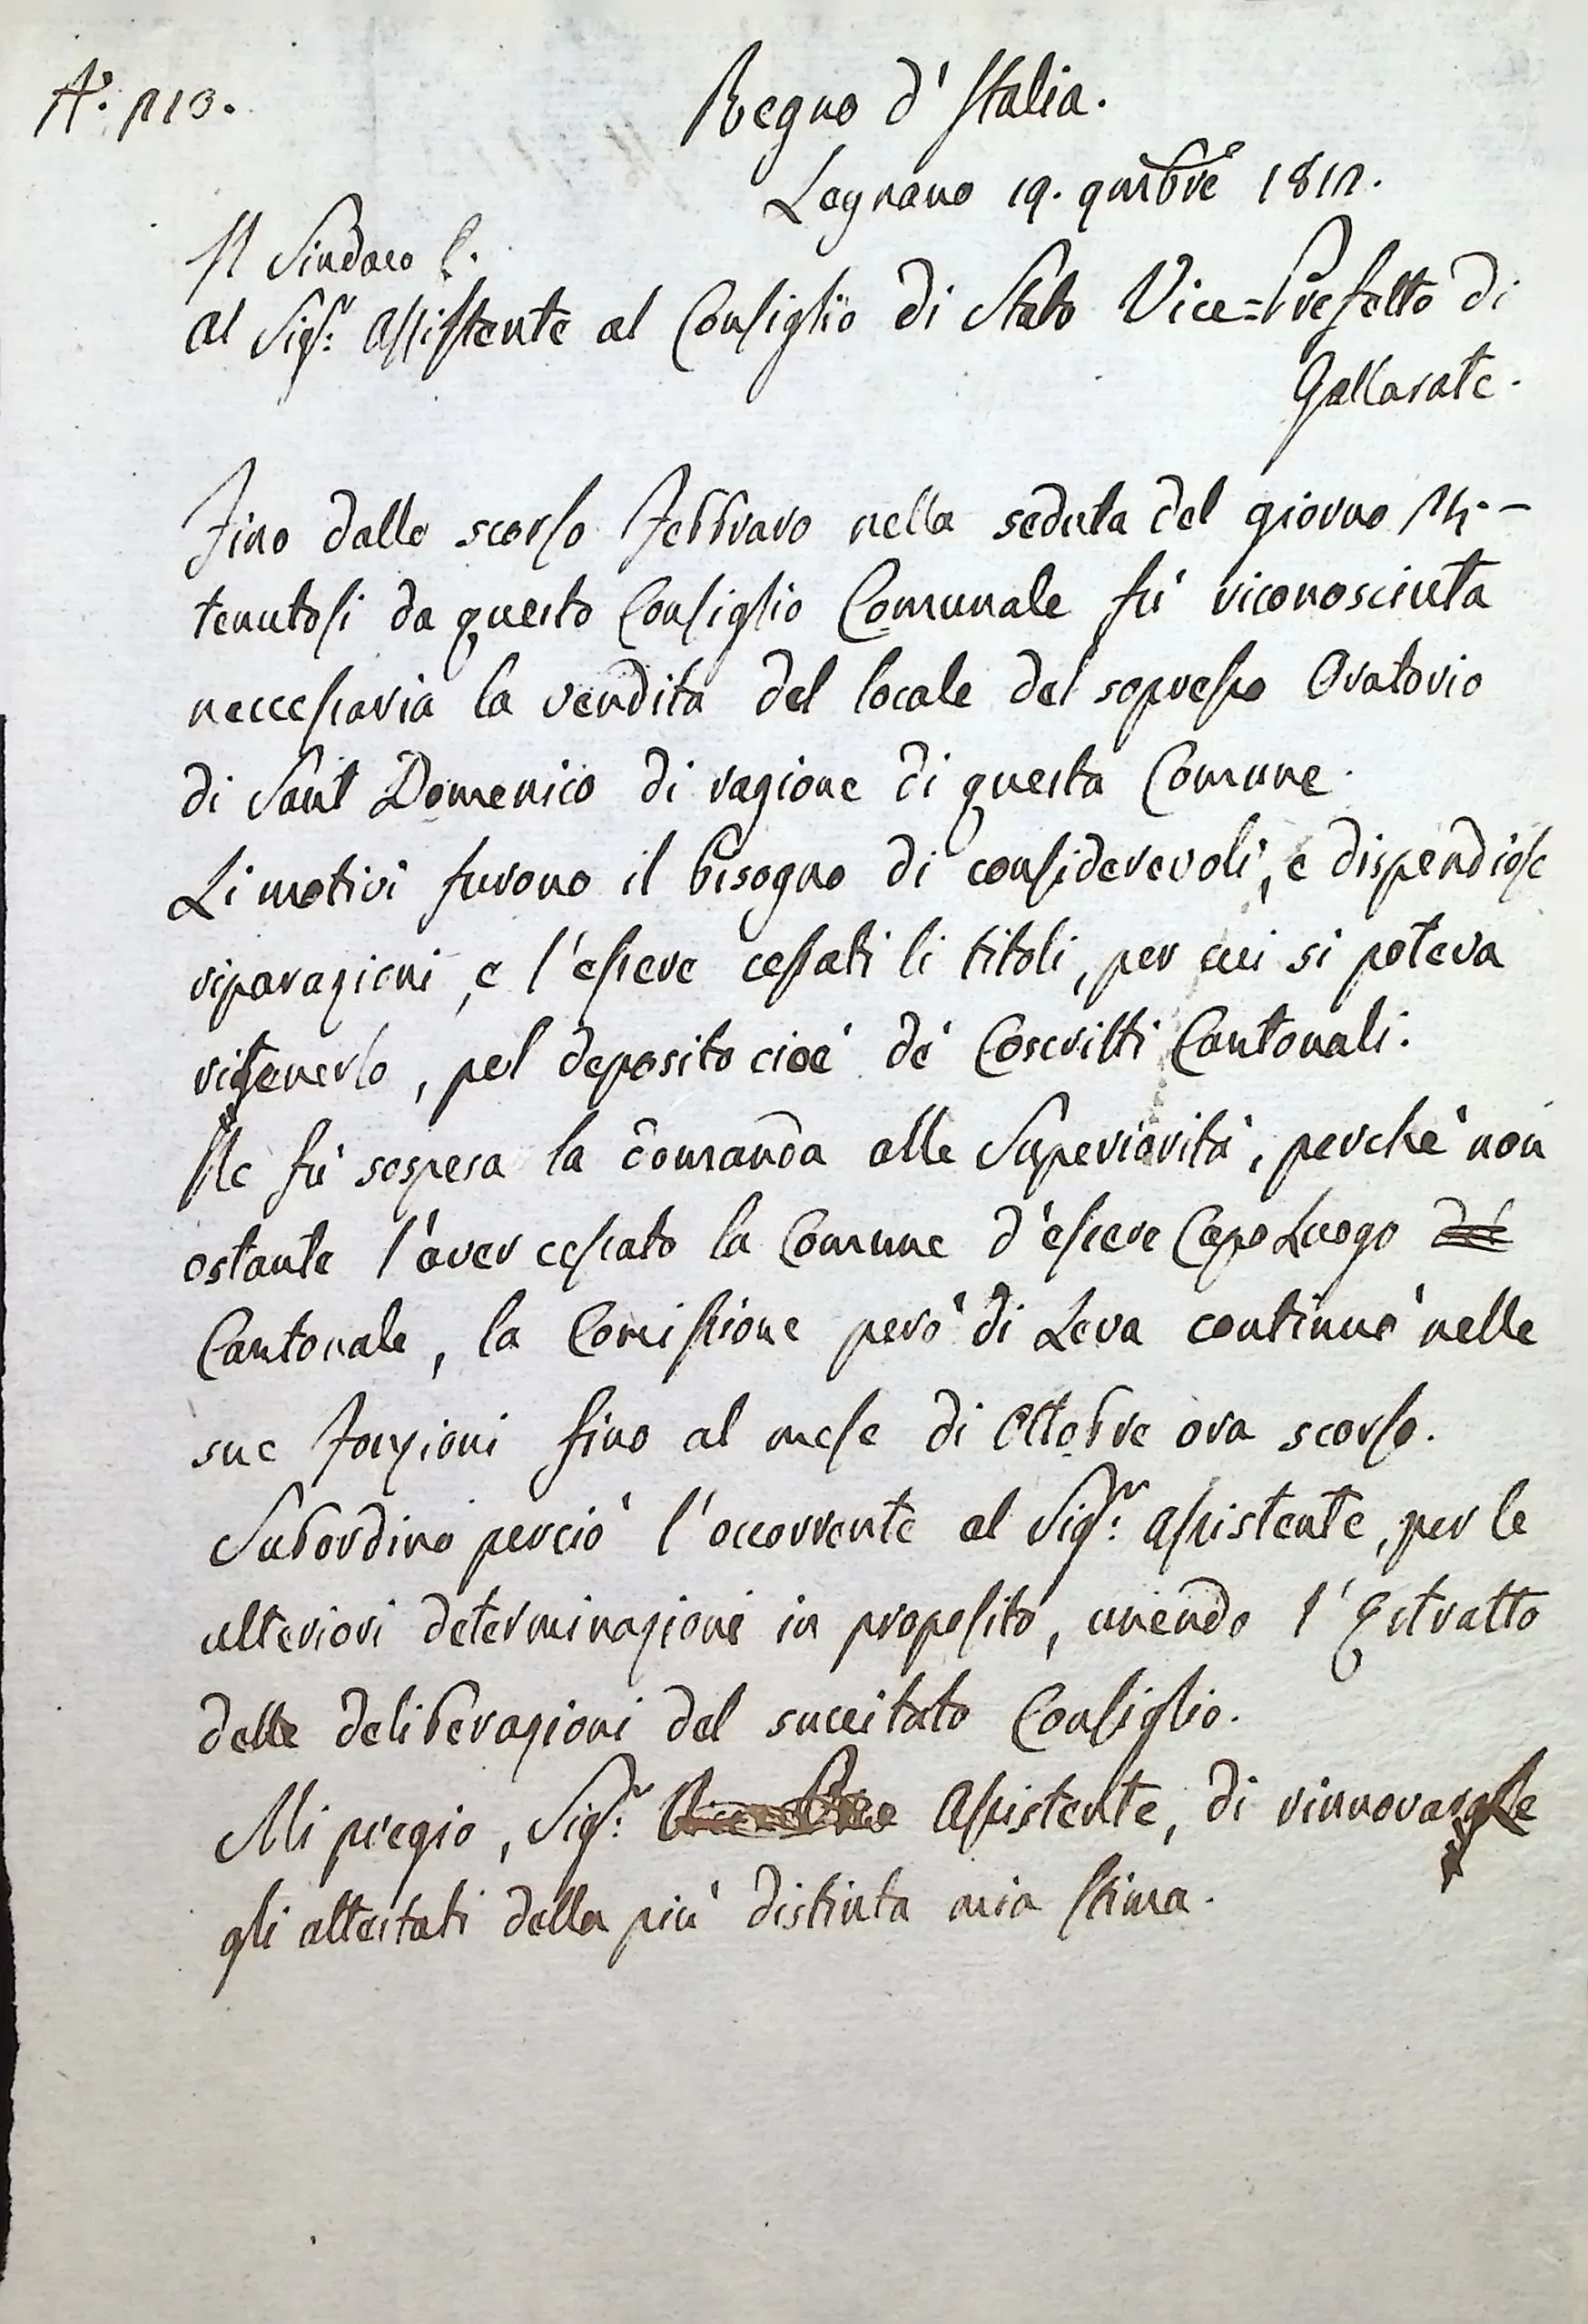 N.° 210.
Regno d'Italia.
Legnano 19. 9mbre 1812.
Il Sindaco
Al Sigr. Assistente al Consiglio di Stato Vice=Prefetto di
Gallarate.
Fino dallo scorso Febbraro nella seduta del giorno 24. -
tenutosi da questo Consiglio Comunale fù riconosciuta
neccessaria la vendita del locale del sopresso Oratorio
di Sant Domenico di ragione di questa Comune.
Li motivi furono il bisogno di considerevoli, e dispendiose
riparazioni, e l'essere cessati li titoli, per cui si poteva
ritenerlo, pel deposito cioè de' Coscritti Cantonali.
Ne fù sospesa la domanda alle Superiorità, perchè non
ostante l'aver cessato la Comune d'essere Capo Luogo
Cantonale, la Comissione però di Leva continuò nelle
sue Fonzioni fino al mese di Ottobre ora scorso.
Subordino perciò l'occorrente al Sigr. Assistente, per le
ulteriori determinazioni in proposito, unendo l'Estratto
delle deliberazioni del succitato Consiglio.
Mi pregio, Sigr. Assistente, di rinnovargle
gli attestati della più distinta mia stima.